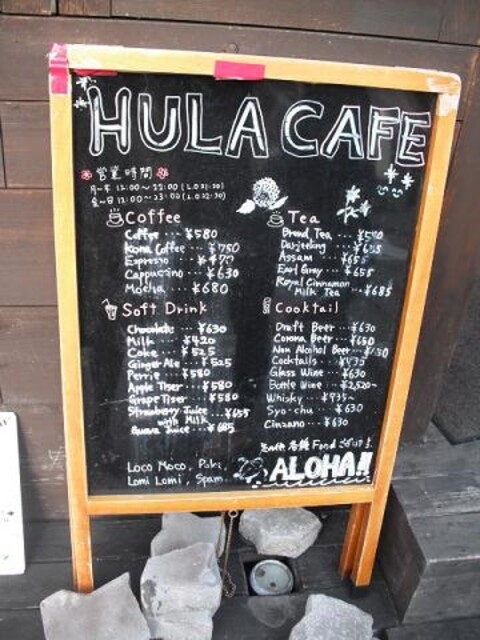 HULA CAFE
営業時間
月〜木 12:00〜22:00 (L.O 21:30)
金〜日 12:00〜23:00 (L.O 22:30)
Coffee
Coffee ... ¥580
Kona Coffee ... ¥750
Espresso ... ¥477
Cappuccino ... ¥630
Mocha ... ¥680
Tea
Brend Tea ... ¥580
Darjeeling ... ¥655
Assam ... ¥655
Earl Gray ... ¥655
Royal Cinnamon
Milk Tea ... ¥685
Soft Drink
Chocolate ... ¥630
Milk ... ¥420
Coke ... ¥525
Ginger Ale ... ¥525
Perrie ... ¥580
Apple Tiser ... ¥580
Grape Tiser ... ¥580
Strawberry Juice ... ¥655
with Milk
Guava Juice ... ¥685
Cooktail
Draft Beer ... ¥630
Corona Beer ... ¥650
Non Alcohol Beer ... ¥630
Cocktails ... ¥735
Glass Wine ... ¥630
Bottle Wine ... ¥2,520~
Whisky ... ¥735~
Syo-chu ... ¥630
Cinzano ... ¥630
その他 各種 Food ございます
Loco Moco, Poki,
Lomi Lomi, Spam
ALOHA!!